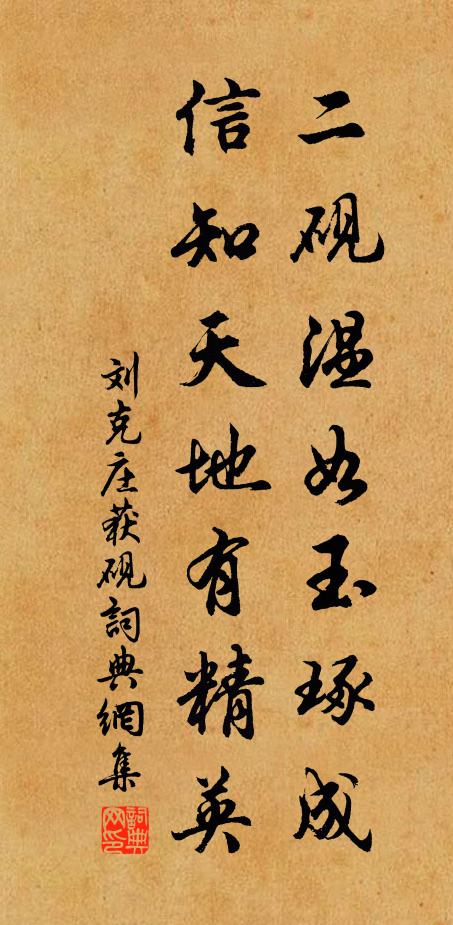 二砚温如玉琢成
信知天地有精英
刘克庄获砚詞典網集
詞典网印